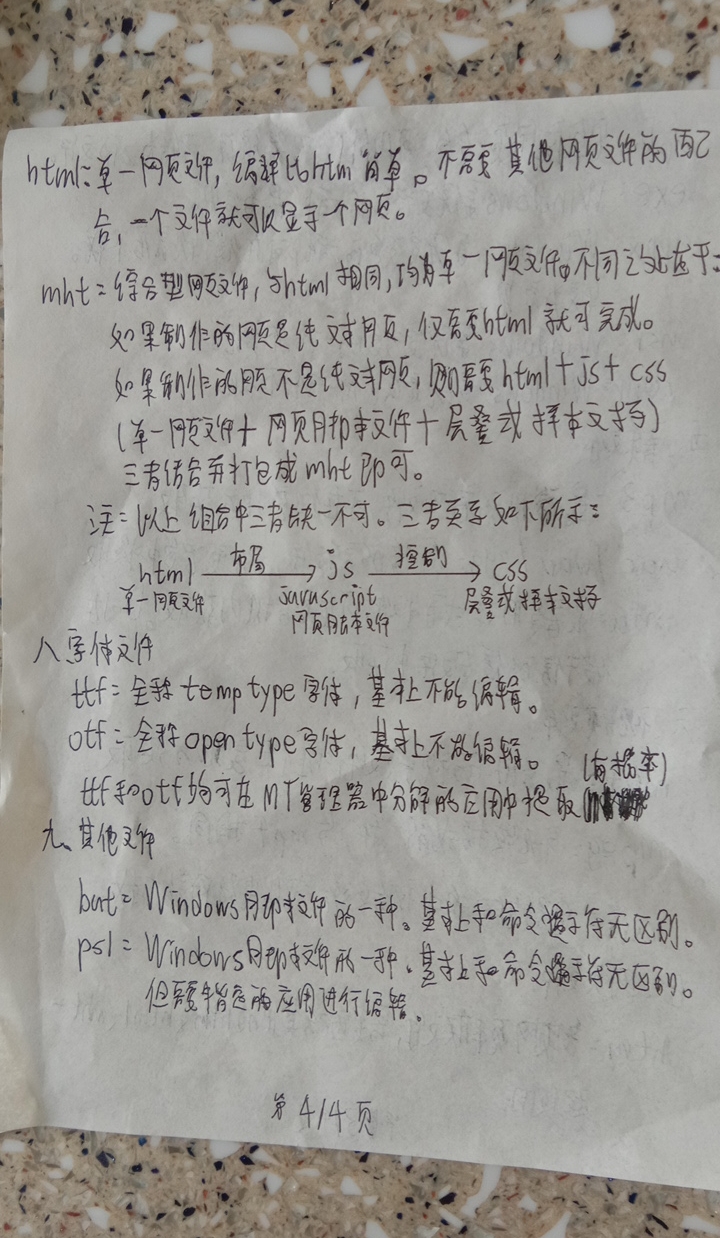 html：单一网页文件，编辑比htm简单。不需要其他网页文件的配
合，一个文件就可以显示一个网页。
mht=综合型网页文件，与html相同，均为单一网页文件。不同之处在于：
如果制作的网页是纯文本网页，仅需要html就可完成。
如果制作的网页不是纯文本网页，则需要html+js+css
(单一网页文件+网页脚本文件+层叠或样本文档)
三者结合并打包成mht即可。
注=以上组合中三者缺一不可。三者关系如下所示：
html 布局→ js 控制→ css
单一网页文件 javascript 层叠或样本文档
网页脚本文件
八字体文件
ttf=全称temp type字体，基本上不能编辑。
otf=全称open type字体，基本上不能编辑。
(有概率)
ttf和otf均可在MT管理器中分解的应用中提取
九、其他文件
bat=Windows脚本文件的一种。基本上和命令提示符无区别。
ps1=Windows脚本文件的一种。基本上和命令提示符无区别。
但需要指定的应用进行编辑。
第4/4页